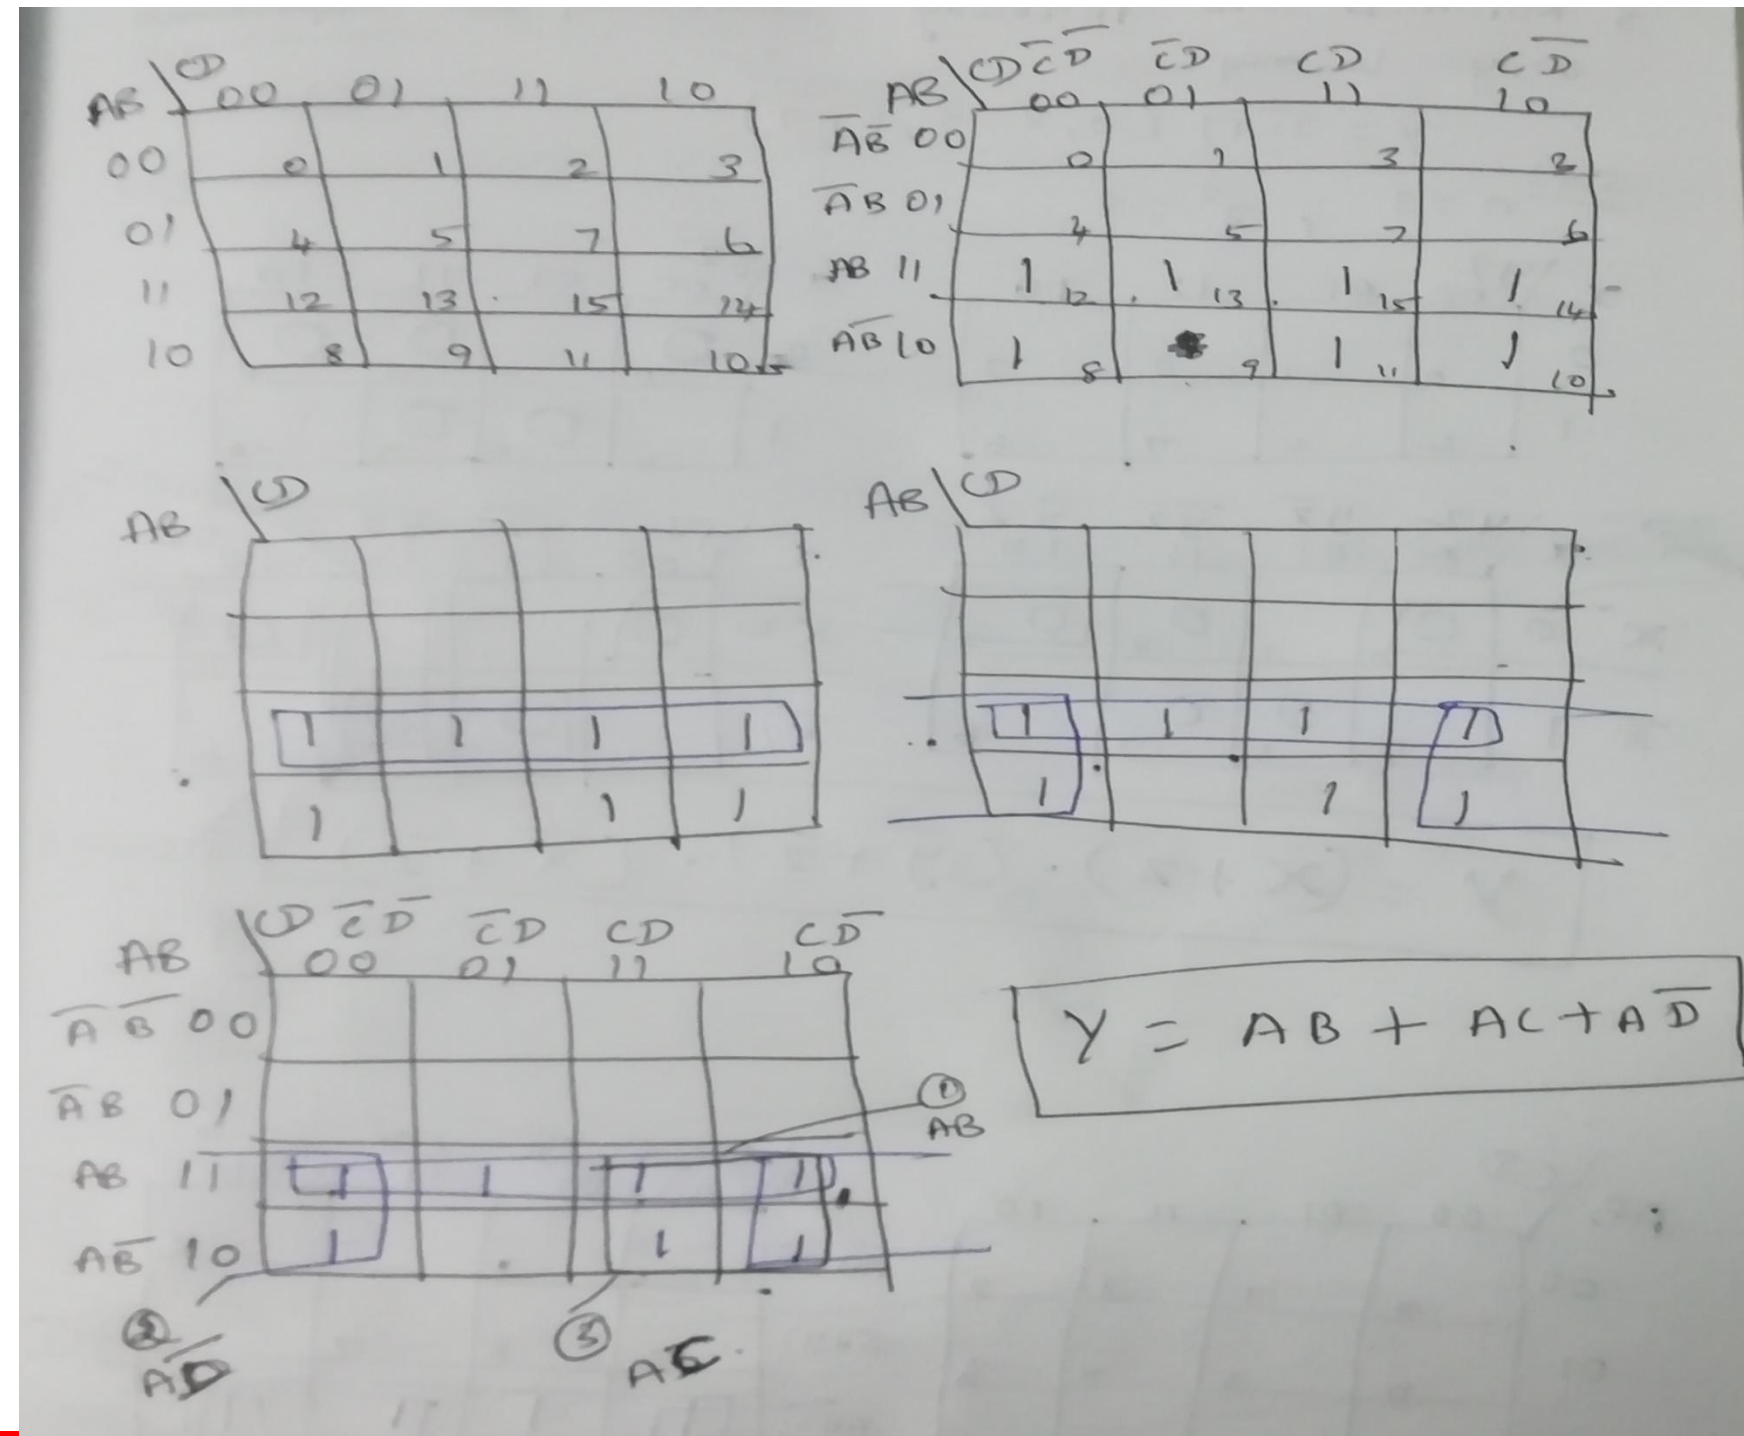 AB \ CD 00 01 11 10
00 0 1 2 3
01 4 5 7 6
11 12 13 15 14
10 8 9 11 10
AB \ CD C̅ D̅ C̅D CD CD̅
00 01 11 10
A̅B̅ 00 0 1 3 2
A̅B 01 4 5 7 6
AB 11 1 12 1 13 1 15 1 14
AB̅ 10 1 8 9 1 11 1 10
AB \ CD
1 1 1 1
1 1 1
AB \ CD
1 1 1 1
1 1 1
AB \ CD C̅ D̅ C̅D CD CD̅
00 01 11 10
A̅ B̅ 00
A̅B 01
AB 11 1 1 1 1
AB̅ 10 1 1 1
① AB
② AD̅
③ AC
Y = AB + AC + AD̅